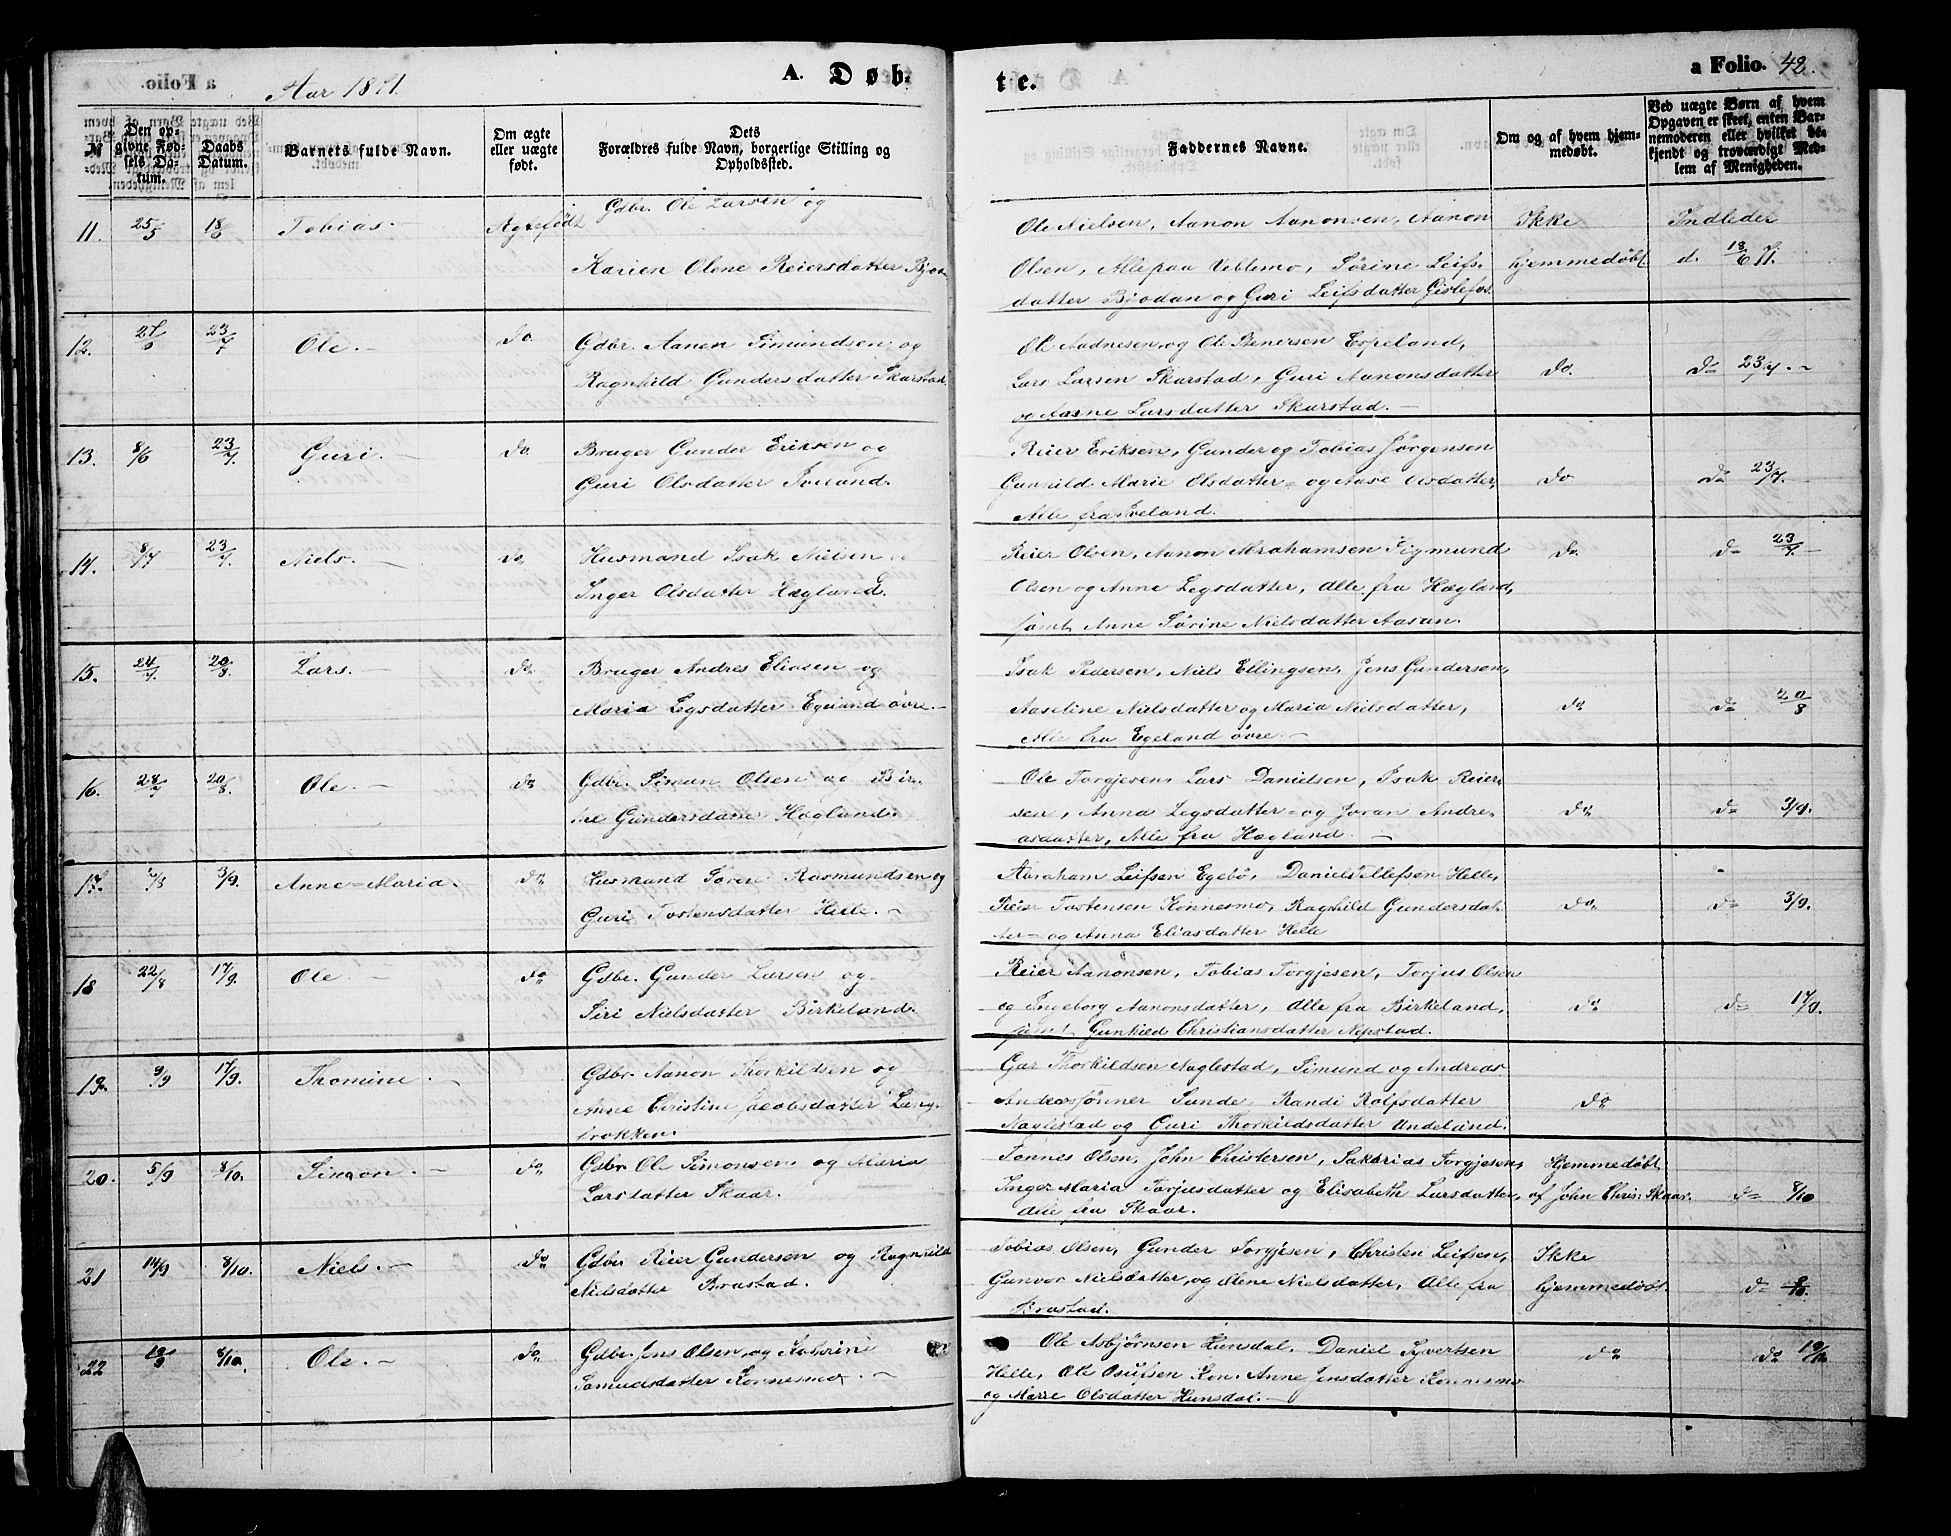 a Folio.
Aar 1871.
A. Døb-
te.
a Folio. 42.
№
Den opgivne Fødsels Datum.
Daabs Datum.
Barnets fulde Navn.
Om ægte eller uægte født.
Dets Forældres fulde Navn, borgerlige Stilling og Opholdssted.
Faddernes Navne.
Om og af hvem hjemmedøbt.
Ved uægte Børn af hvem Opgaven er skeet, enten Barnemoderen eller hvilket bekjendt og troværdigt Medlem af Menigheden.
11. 25/5 18/6 Tobias. Ægtefödt Gdbr. Ole Larsen og
Karien Olene Reiersdatter
Ole Nielsen, Aanon Aanonsen, Aanon
Olsen, Alle paa Veblemo, Sörine Leifs-
datter Bjodan og Guri Leifsdatter Gislefos.
Ikke
hjemmedøbt
Indleder
d. 18/6 71.
12. 23/7 Ole. do Gdbr. Aanen Simundsen og
Ragnhild Gundersdatter Skarstad
Ole Aadnesen og Ole Stenersen Espeland,
Lars Larsen Skarstad, Guri Aanonsdatter
og Aasne Larsdatter Skarstad.
do. do 23/7
13. 8/6 23/7. Guri. do Bruger Gunder Eriksen og
Guri Olsdatter Tveland.
Reier Eriksen, Gunder og Tobias Jörgensen
Gunhild Marie Olsdatter og Aase Olsdatter,
Alle fra Tveland.
do do 23/7.
14. 8/7 23/7. Niels. do Husmand Isak Nielsen o
Inger Olsdatter Hægland.
Reier Olsen, Aanon Abrahamsen Sigmund
Olsen og Anne Legsdatter, Alle fra Hægland,
samt Anne Sörine Nielsdatter Aasan.
do. d= 23/7.
15. 24/7. 20/8. Lars. do Bruger Andres Eliasen og
Maria Legsdatter Egeland övre.
Isak Pedersen, Niels Ellingsen, Jens Gundersen,
Aaseline Nielsdatter og Maria Nielsdatter,
Alle fra Egeland övre.
do d= 20/8
16. 28/7 20/8. Ole. do Gdbr. Simun Olsen og Bir-
Gundersdatter Hægland.
Ole Torgjesen, Lars Danielsen, Isak Reier-
sen, Anna Legsdatter og Joran Andre-
asdatter, Alle fra Hægland.
do d= 3/9.
17. 3/9. Anne Maria. do Husmand Sören Rasmundsen og
Guri Tostensdatter Helle.
Abraham Leifsen Egebö, Daniel Tellefsen Helle,
Reier Tostensen Konnesmo, Ragnhild Gundersdat-
ter og Anna Eliasdatter Helle
do d= 3/9.
18 22/8 17/9. Ole. do Gdbr. Gunder Larsen og
Siri Nielsdatter Birkeland.
Reier Aanonsen, Tobias Torgjesen, Torjus Olsen
og Ingeborg Aanonsdatter, Alle fra Birkeland,
samt Gunhied Christiansdatter Nepstad.
do d= 17/9.
19. 9/9 17/9. Thomine. Gdbr. Aanon Thorkildsen og
Anne Christine Jacobsdatter Lang-
brokken.
Thorkildsen Naglestad, Simund og Andreas
Anderssönner Sunde, Randi Rolfsdatter
Naglestad og Guri Thorkildsdatter Undeland.
do
20. 5/9 8/10. Simon. do Gdbr Ole Simonsen og Maria
Larsdatter Skaar.
Tönnes Olsen, John Christersen, Sakarias Torgjesen,
Inger Maria Torjusdatter og Elisabeth Larsdatter,
fra Skaar.
Hjemmedöbt
af John Chris: Skaar.
d= 8/10
21 14/9 8/10. Niels. do Gdbr Reier Gundersen og Ragnhild
Nielsdatter Brastad.
Tobias Olsen, Gunder Torgjesen, Christen Leifsen,
Gunvor Nielsdatter, og Olene Nielsdatter, Alle fra
Brastad.
Ikke
hjemmedöbt.
d= 8/10.
22 8/10. Ole. do Gdbr. Jens Olsen og Katrine
Samuelsdatter Konnesmo.
Ole Asbjørnsen Hunsdal, Daniel Syvertsen
Helle, Ole Osufsen Kon. Anne Jensdatter Konnesmo
og Marie Olsdatter Hunsdal.
do do